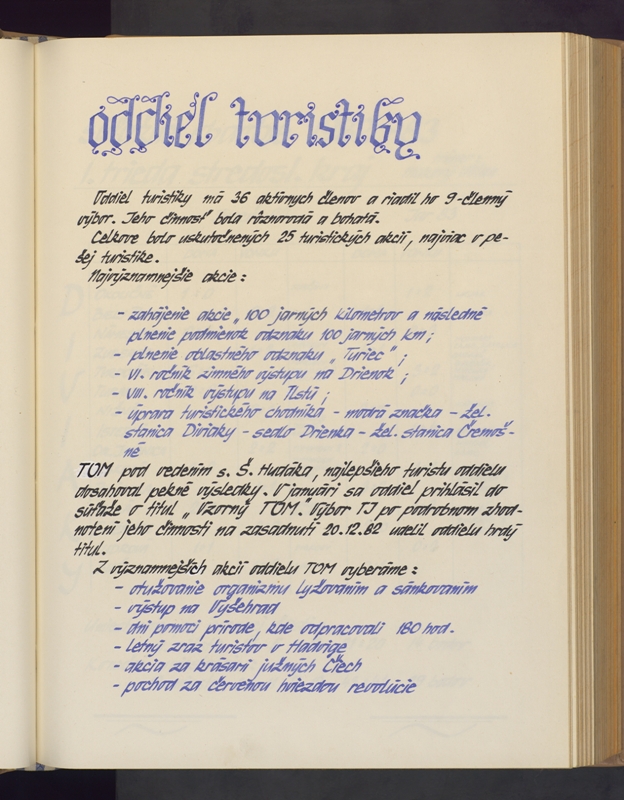 oddiel turistiky
Oddiel turistiky má 36 aktívnych členov a riadil ho 9-členný
výbor. Jeho činnosť bola rôznorodá a bohatá.
Celkove bolo uskutočnených 25 turistických akcií, najviac v pe-
šej turistike.
Najvýznamnejšie akcie:
- zahájenie akcie „100 jarných kilometrov a následné
plnenie podmienok odznaku 100 jarných km;
- plnenie oblastného odznaku „Turiec";
- VI. ročník zimného výstupu na Drienok;
- VIII. ročník výstupu na Tlstú;
- úprava turistického chodníka - modrá značka - žel.
stanica Diviaky - sedlo Drienka - žel. stanica Čremoš-
né
TOM pod vedením s. Š. Hudáka, najlepšieho turistu oddielu
dosahoval pekné výsledky. V januári sa oddiel prihlásil do
súťaže o titul „Vzorný TOM." Výbor TJ po podrobnom zhod-
notení jeho činnosti na zasadnutí 20.12.82 udelil oddielu hrdý
titul.
Z významnejších akcií oddielu TOM vyberáme:
- otužovanie organizmu lyžovaním a sánkovaním
- výstup na Vyšehrad
- dni pomoci prírode, kde odpracovali 180 hod.
- letný zraz turistov v Hadvige
- akcia za krásami južných Čiech
- pochod za červeňou hviezdou revolúcie